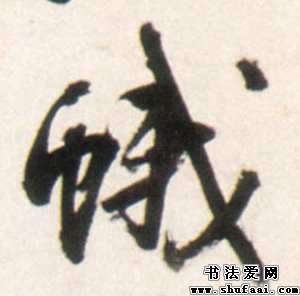 蛾
书法爱网
www.shufaai.com